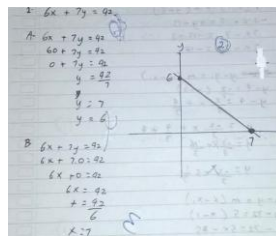 1. 6x + 7y = 42
A. 6x + 7y = 42
60 + 7y = 42
0 + 7y = 42
y = 42/7
y = 7
y = 6
B
6x + 7y = 42
6x + 7.0 = 42
6x + 0 = 42
6x = 42
x = 42/6
x = 7
2
y
6
7